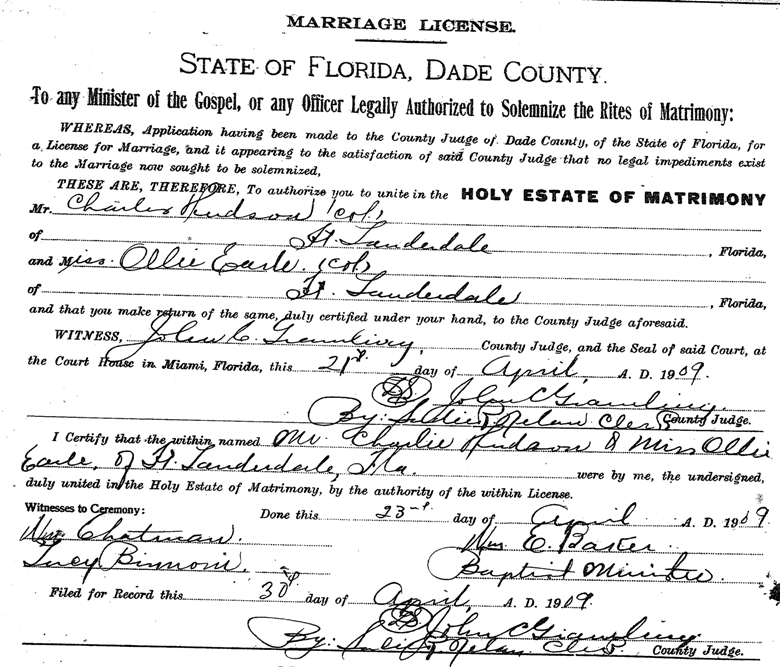 MARRIAGE LICENSE.
STATE OF FLORIDA, DADE COUNTY.
To any Minister of the Gospel, or any Officer Legally Authorized to Solemnize the Rites of Matrimony:
WHEREAS, Application having been made to the County Judge of Dade County, of the State of Florida, for
a License for Marriage, and it appearing to the satisfaction of said County Judge that no legal impediments exist
to the Marriage now sought to be solemnized,
THESE ARE, THEREFORE, To authorize you to unite in the HOLY ESTATE OF MATRIMONY
Mr. Charles Hudson (col)
of Ft. Lauderdale, Florida,
and Miss. Ollie Earle. (col)
of Ft. Lauderdale, Florida,
and that you make return of the same, duly certified under your hand, to the County Judge aforesaid.
WITNESS, John C. Gramling, County Judge, and the Seal of said Court, at
the Court House in Miami, Florida, this 21st day of April, A. D. 1909.
John C Gramling
By: Nelan Clerk County Judge.
I Certify that the within named Mr. Charlie Hudson & Miss Ollie
Earle, of Ft. Lauderdale, Fla. were by me, the undersigned,
duly united in the Holy Estate of Matrimony, by the authority of the within License.
Witnesses to Ceremony: Done this 23 day of April A. D. 1909
Wm Chatman. Wm E. Baker
Lucy Baptist Minister.
Filed for Record this 30 day of April, A. D. 1909.
John C Gramling
By: Nelan Clerk County Judge.